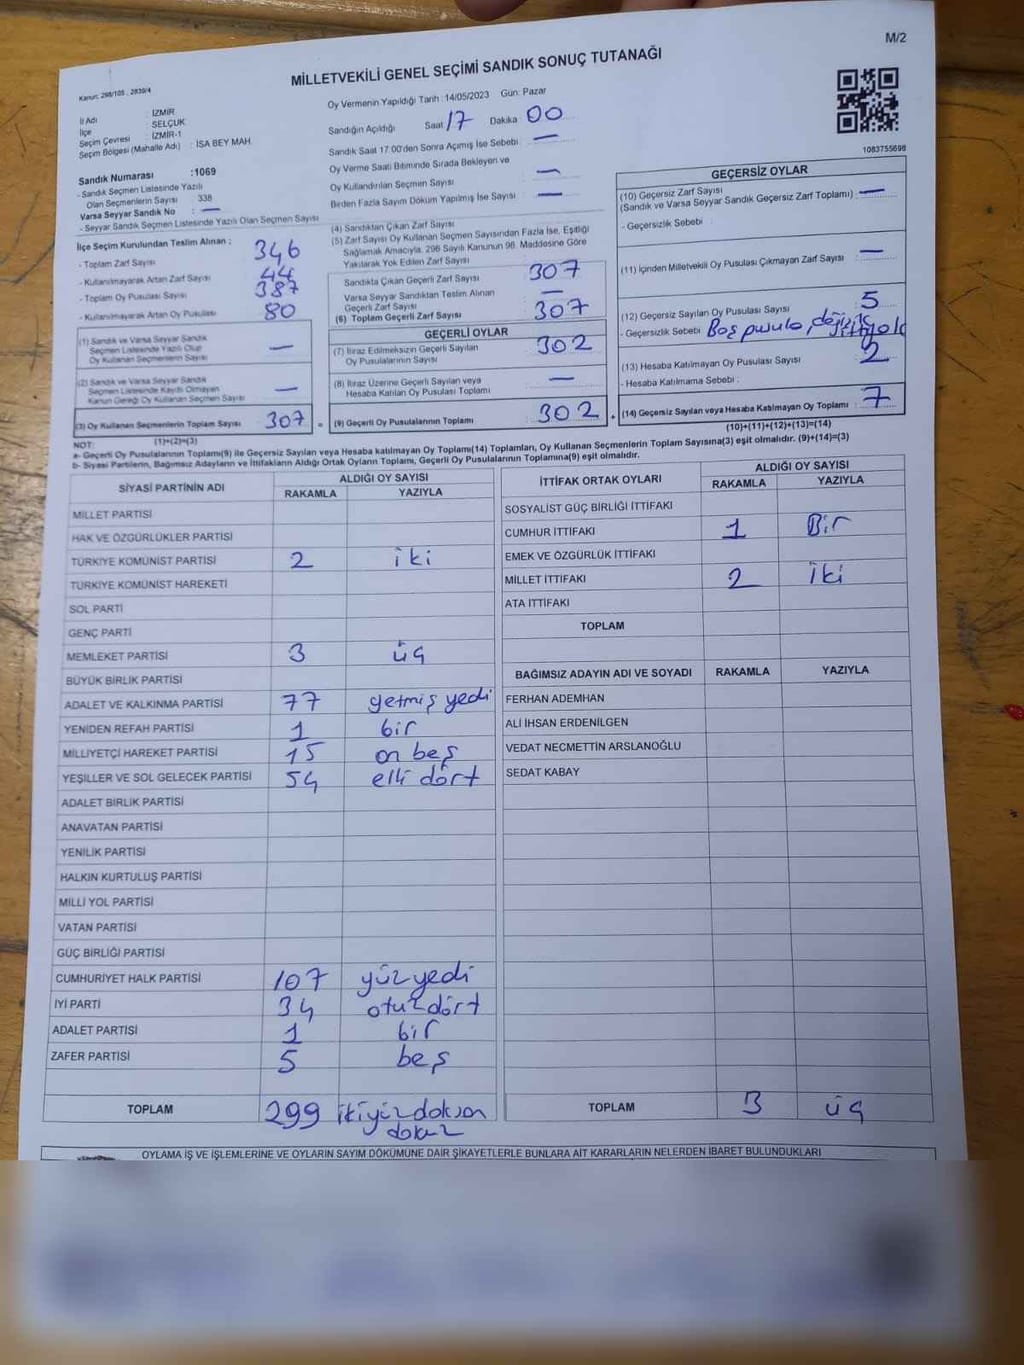 M/2
MİLLETVEKİLİ GENEL SEÇİMİ SANDIK SONUÇ TUTANAĞI
Kanun: 298/105 , 2839/4
İl Adı : İZMİR
İlçe : SELÇUK
Seçim Çevresi : İZMİR-1
Seçim Bölgesi (Mahalle Adı) : İSA BEY MAH.
Sandık Numarası :1069
- Sandık Seçmen Listesinde Yazılı
Olan Seçmenlerin Sayısı : 338
Varsa Seyyar Sandık No : —
- Seyyar Sandık Seçmen Listesinde Yazılı Olan Seçmen Sayısı
Oy Vermenin Yapıldığı Tarih : 14/05/2023 Gün: Pazar
Sandığın Açıldığı Saat 17 Dakika 00
Sandık Saat 17:00'den Sonra Açımış İse Sebebi : —
Oy Verme Saati Bitiminde Sırada Bekleyen ve
Oy Kullandırılan Seçmen Sayısı : —
Birden Fazla Sayım Döküm Yapılmış İse Sayısı : —
1083755698
İlçe Seçim Kurulundan Teslim Alınan ;
- Toplam Zarf Sayısı : 346
- Kullanılmayarak Artan Zarf Sayısı : 44
- Toplam Oy Pusulası Sayısı : 387
- Kullanılmayarak Artan Oy Pusulası : 80
(1) Sandık ve Varsa Seyyar Sandık
Seçmen Listesinde Yazılı Olup
Oy Kullanan Seçmenlerin Sayısı : —
(2) Sandık ve Varsa Seyyar Sandık
Seçmen Listesinde Kayıtlı Olmayan
Kanun Gereği Oy Kullanan Seçmen Sayısı : —
(3) Oy Kullanan Seçmenlerin Toplam Sayısı : 307
(1)+(2)=(3)
(4) Sandıktan Çıkan Zarf Sayısı
(5) Zarf Sayısı Oy Kullanan Seçmen Sayısından Fazla İse, Eşitliği
Sağlamak Amacıyla, 298 Sayılı Kanunun 98. Maddesine Göre
Yakılarak Yok Edilen Zarf Sayısı
Sandıkta Çıkan Geçerli Zarf Sayısı : 307
Varsa Seyyar Sandıktan Teslim Alınan
Geçerli Zarf Sayısı : —
(6) Toplam Geçerli Zarf Sayısı : 307
GEÇERLİ OYLAR
(7) İtiraz Edilmeksizin Geçerli Sayılan
Oy Pusulalarının Sayısı : 302
(8) İtiraz Üzerine Geçerli Sayılan veya
Hesaba Katılan Oy Pusulası Toplamı : —
= (9) Geçerli Oy Pusulalarının Toplamı : 302 +
GEÇERSİZ OYLAR
(10) Geçersiz Zarf Sayısı
(Sandık ve Varsa Seyyar Sandık Geçersiz Zarf Toplamı) : —
- Geçersizlik Sebebi :
(11) İçinden Milletvekili Oy Pusulası Çıkmayan Zarf Sayısı : —
(12) Geçersiz Sayılan Oy Pusulası Sayısı : 5
- Geçersizlik Sebebi : Boş pusula,
(13) Hesaba Katılmayan Oy Pusulası Sayısı : 2
- Hesaba Katılmama Sebebi :
(14) Geçersiz Sayılan veya Hesaba Katılmayan Oy Toplamı : 7
(10)+(11)+(12)+(13)=(14)
NOT:
a- Geçerli Oy Pusulalarının Toplamı(9) ile Geçersiz Sayılan veya Hesaba katılmayan Oy Toplamı(14) Toplamları, Oy Kullanan Seçmenlerin Toplam Sayısına(3) eşit olmalıdır. (9)+(14)=(3)
b- Siyasi Partilerin, Bağımsız Adayların ve İttifakların Aldığı Ortak Oyların Toplamı, Geçerli Oy Pusulalarının Toplamına(9) eşit olmalıdır.
SİYASİ PARTİNİN ADI ALDIĞI OY SAYISI
RAKAMLA YAZIYLA
MİLLET PARTİSİ
HAK VE ÖZGÜRLÜKLER PARTİSİ
TÜRKİYE KOMÜNİST PARTİSİ 2 iki
TÜRKİYE KOMÜNİST HAREKETİ
SOL PARTİ
GENÇ PARTİ
MEMLEKET PARTİSİ 3 üç
BÜYÜK BİRLİK PARTİSİ
ADALET VE KALKINMA PARTİSİ 77 yetmiş yedi
YENİDEN REFAH PARTİSİ 1 bir
MİLLİYETÇİ HAREKET PARTİSİ 15 on beş
YEŞİLLER VE SOL GELECEK PARTİSİ 54 elli dört
ADALET BİRLİK PARTİSİ
ANAVATAN PARTİSİ
YENİLİK PARTİSİ
HALKIN KURTULUŞ PARTİSİ
MİLLİ YOL PARTİSİ
VATAN PARTİSİ
GÜÇ BİRLİĞİ PARTİSİ
CUMHURİYET HALK PARTİSİ 107 yüz yedi
İYİ PARTİ 34 otuz dört
ADALET PARTİSİ 1 bir
ZAFER PARTİSİ 5 beş
TOPLAM 299 ikiyüz doksan
dokuz
İTTİFAK ORTAK OYLARI ALDIĞI OY SAYISI
RAKAMLA YAZIYLA
SOSYALİST GÜÇ BİRLİĞİ İTTİFAKI
CUMHUR İTTİFAKI 1 Bir
EMEK VE ÖZGÜRLÜK İTTİFAKI
MİLLET İTTİFAKI 2 İki
ATA İTTİFAKI
TOPLAM
BAĞIMSIZ ADAYIN ADI VE SOYADI RAKAMLA YAZIYLA
FERHAN ADEMHAN
ALİ İHSAN ERDENİLGEN
VEDAT NECMETTİN ARSLANOĞLU
SEDAT KABAY
TOPLAM 3 üç
OYLAMA İŞ VE İŞLEMLERİNE VE OYLARIN SAYIM DÖKÜMÜNE DAİR ŞİKAYETLERLE BUNLARA AİT KARARLARIN NELERDEN İBARET BULUNDUKLARI